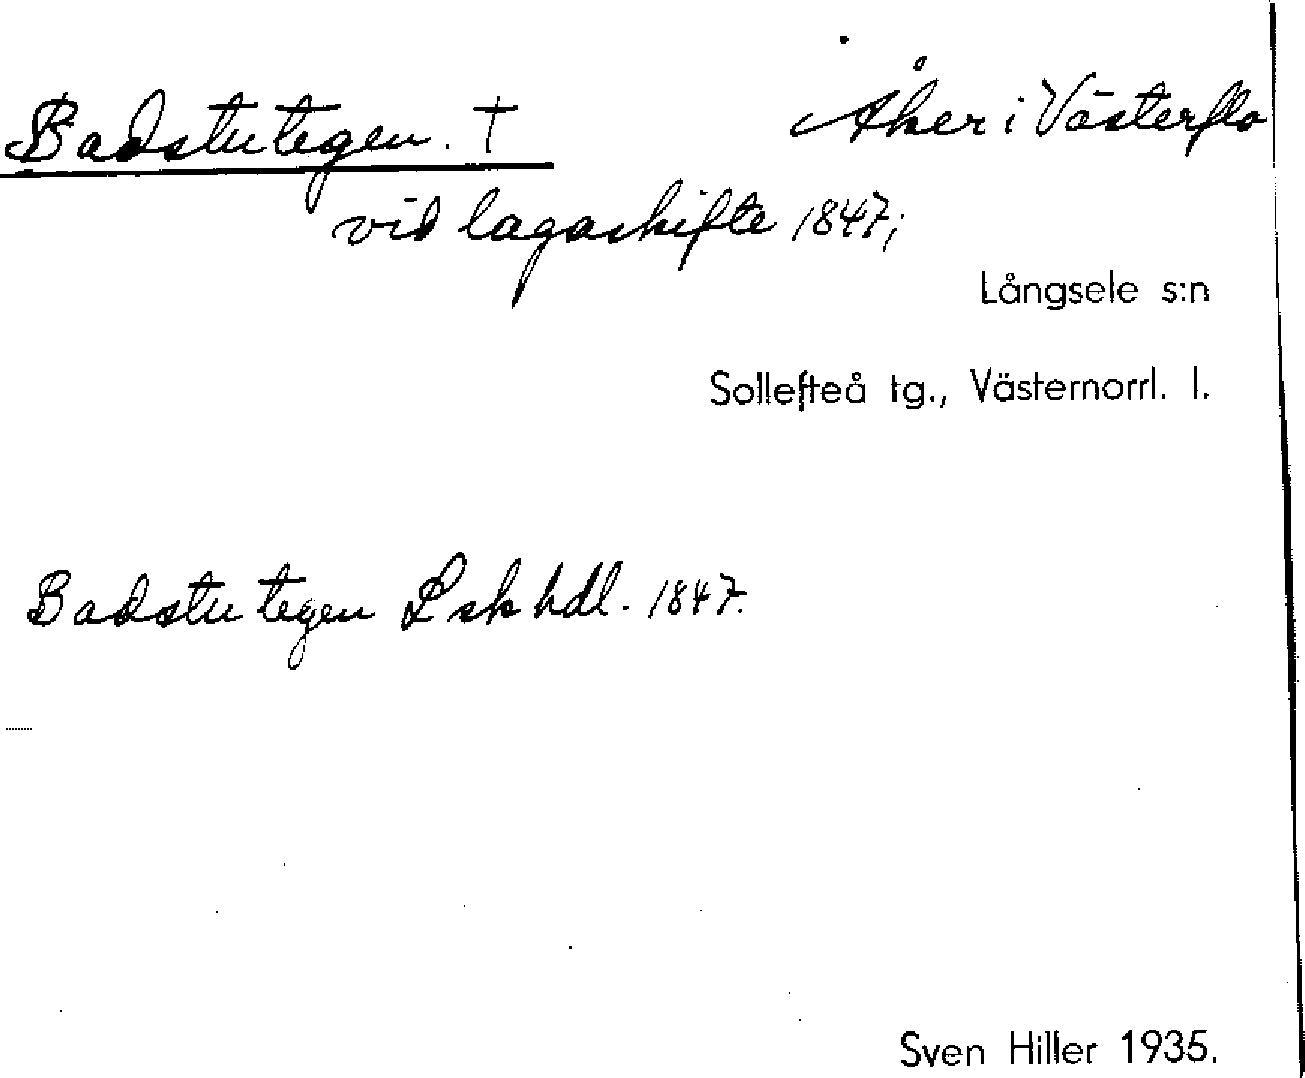 Badstutegen. † Åker i Västerflo
vid lagaskifte 1847;
Långsele s:n
Sollefteå tg., Västernorrl. l.
Badstutegen Lskhdl. 1847.
Sven Hiller 1935.